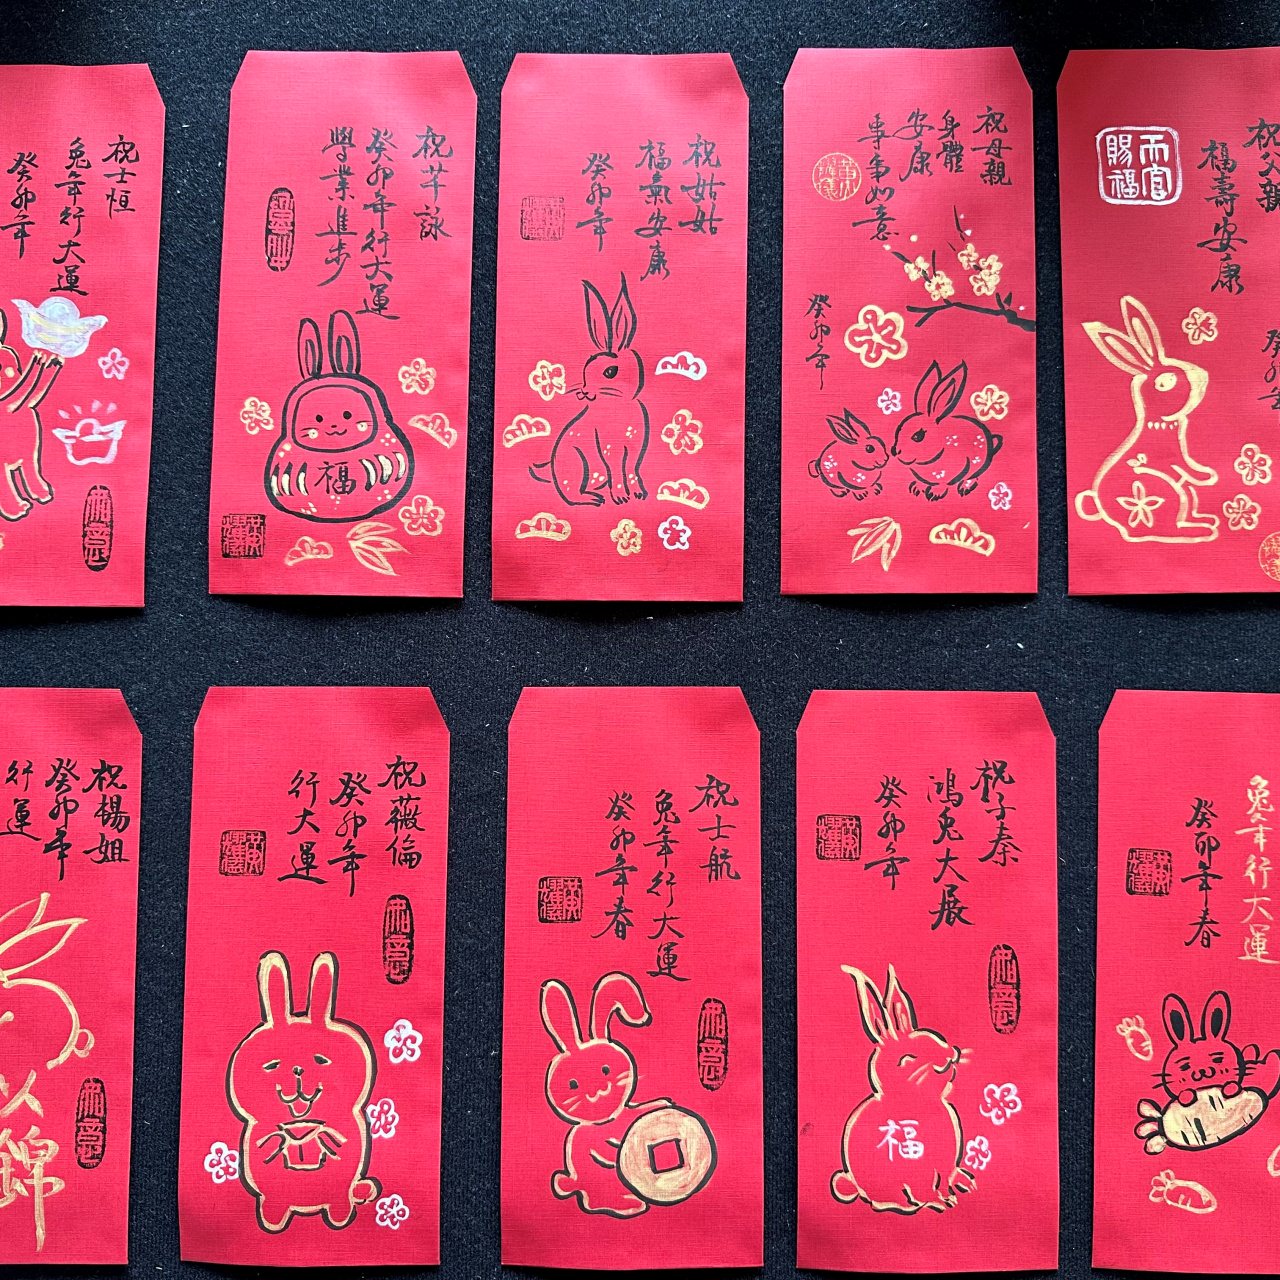 祝士恒
兔年行大運
癸卯年
祝芊詠
癸卯年行大運
學業進步
福
祝姑姑
福氣安康
癸卯年
祝母親
身體
安康
事事如意
癸卯年
天官
賜福
祝父親
福壽安康
癸卯年
祝楊姐
癸卯年
行運
錦
祝薇倫
癸卯年
行大運
祝士航
兔年行大運
癸卯年春
祝子秦
鴻兔大展
癸卯年
福
兔年行大運
癸卯年春